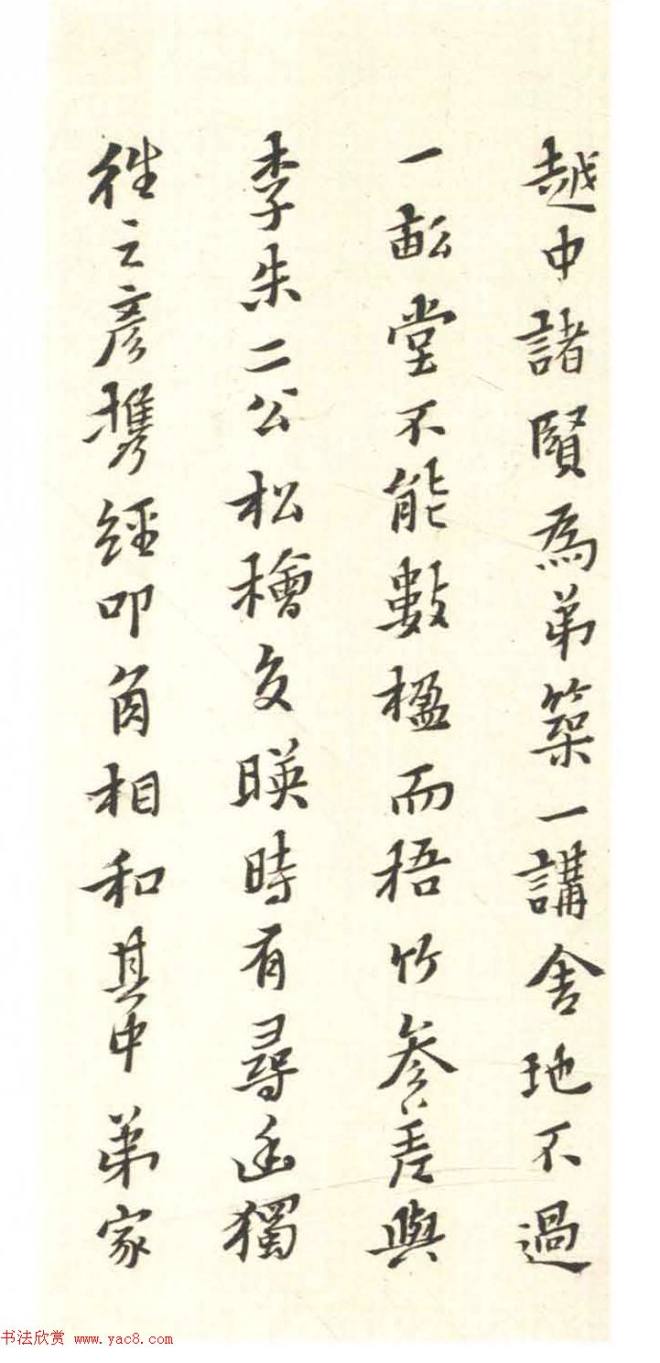 越中諸賢為弟築一講舍地不過
一畝堂不能數楹而梧竹參差與
李朱二公松檜交暎時有尋幽獨
往之彥攜經叩角相和其中弟家
书法欣赏 www.yac8.com